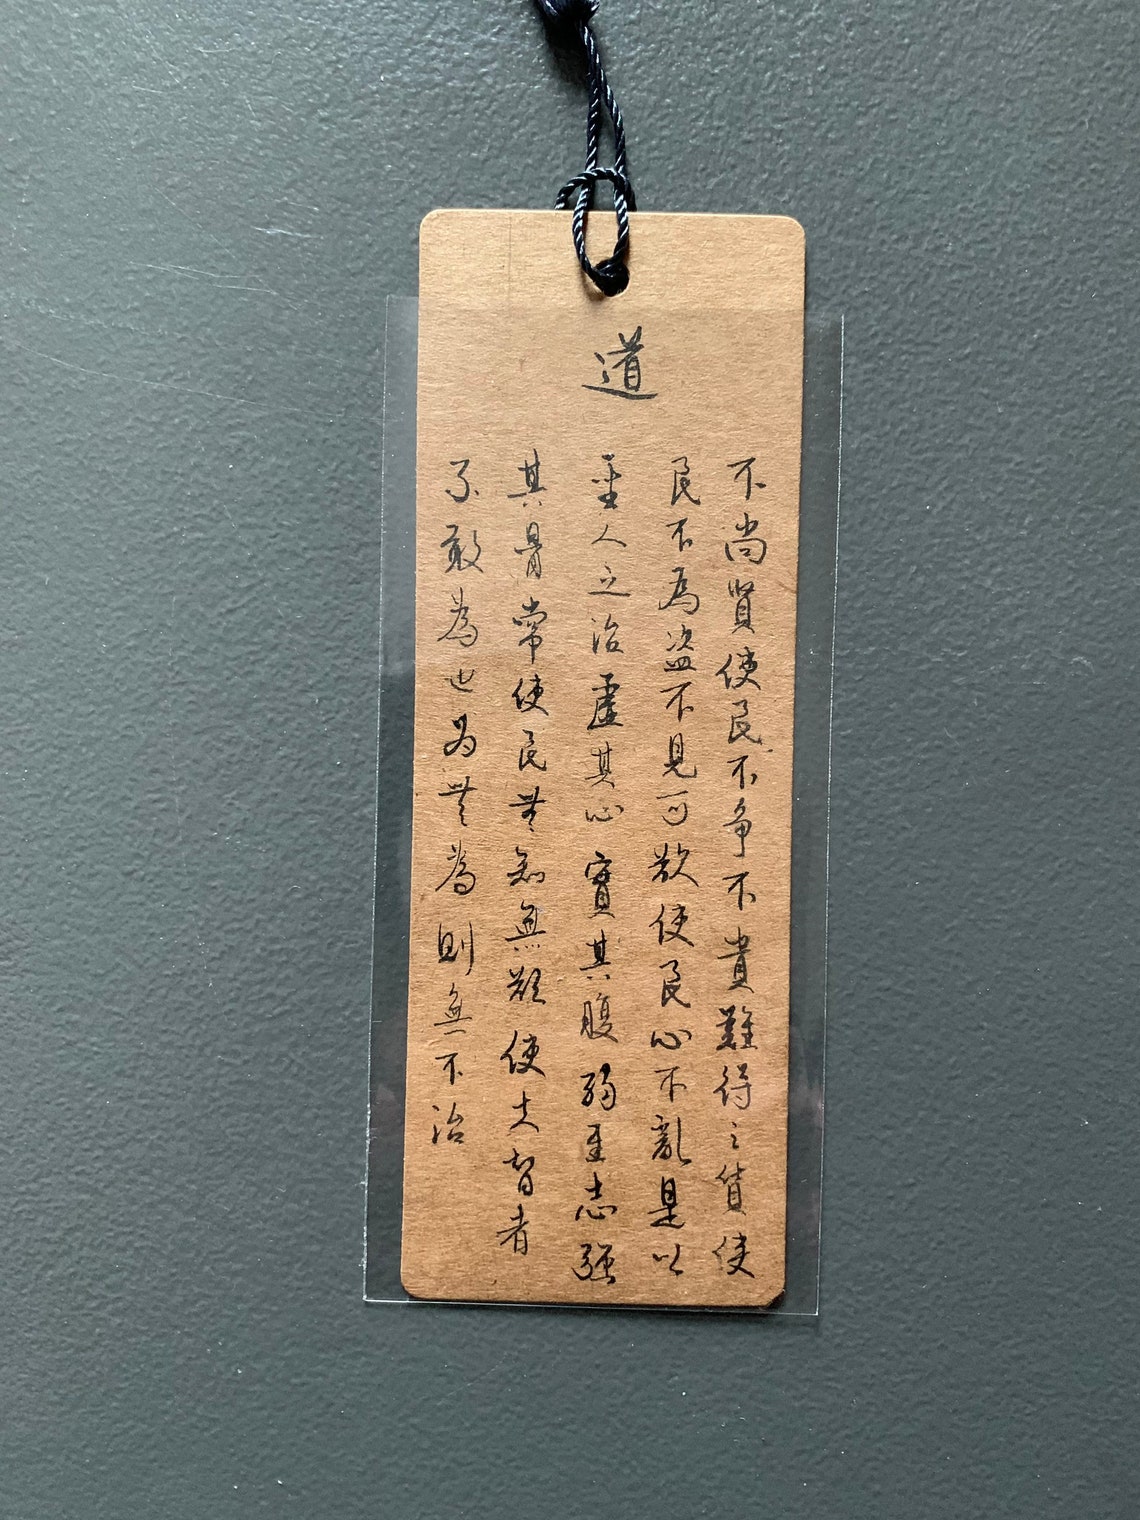 道
不尚賢使民不爭不貴難得之貨使
民不為盜不見可欲使民心不亂是以
聖人之治虛其心實其腹弱其志強
其骨常使民無知無欲使夫智者
不敢為也為無為則無不治